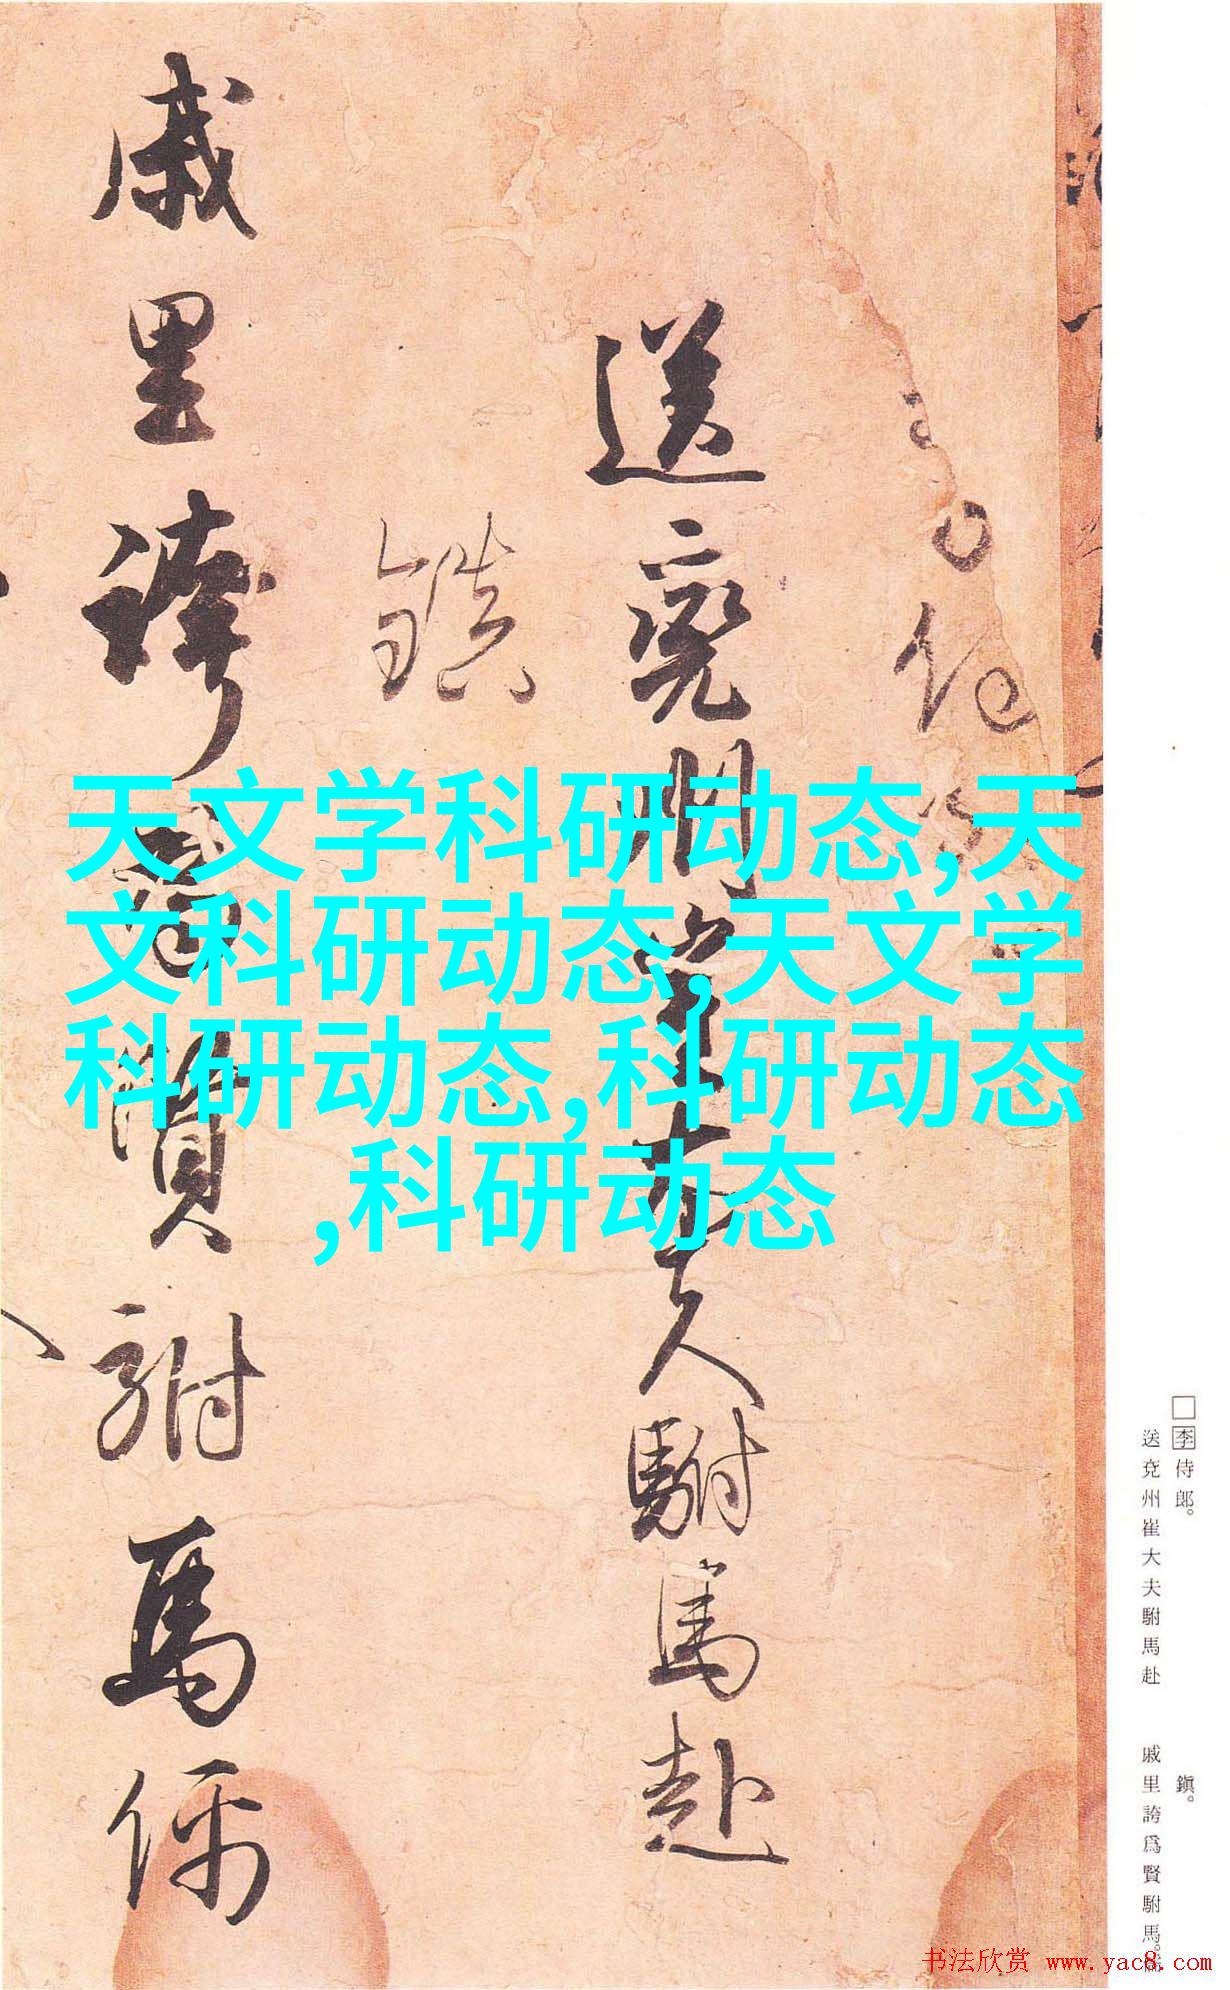 送兖州崔大夫駙馬赴
鎮
戚里誇為賢駙馬儒
天文学科研动态,天
文科研动态,天文学
科研动态,科研动态
,科研动态
□李侍郎。
送兖州崔大夫駙馬赴
鎭。
戚里誇爲賢駙馬。儒
书法欣赏 www.yac8.com